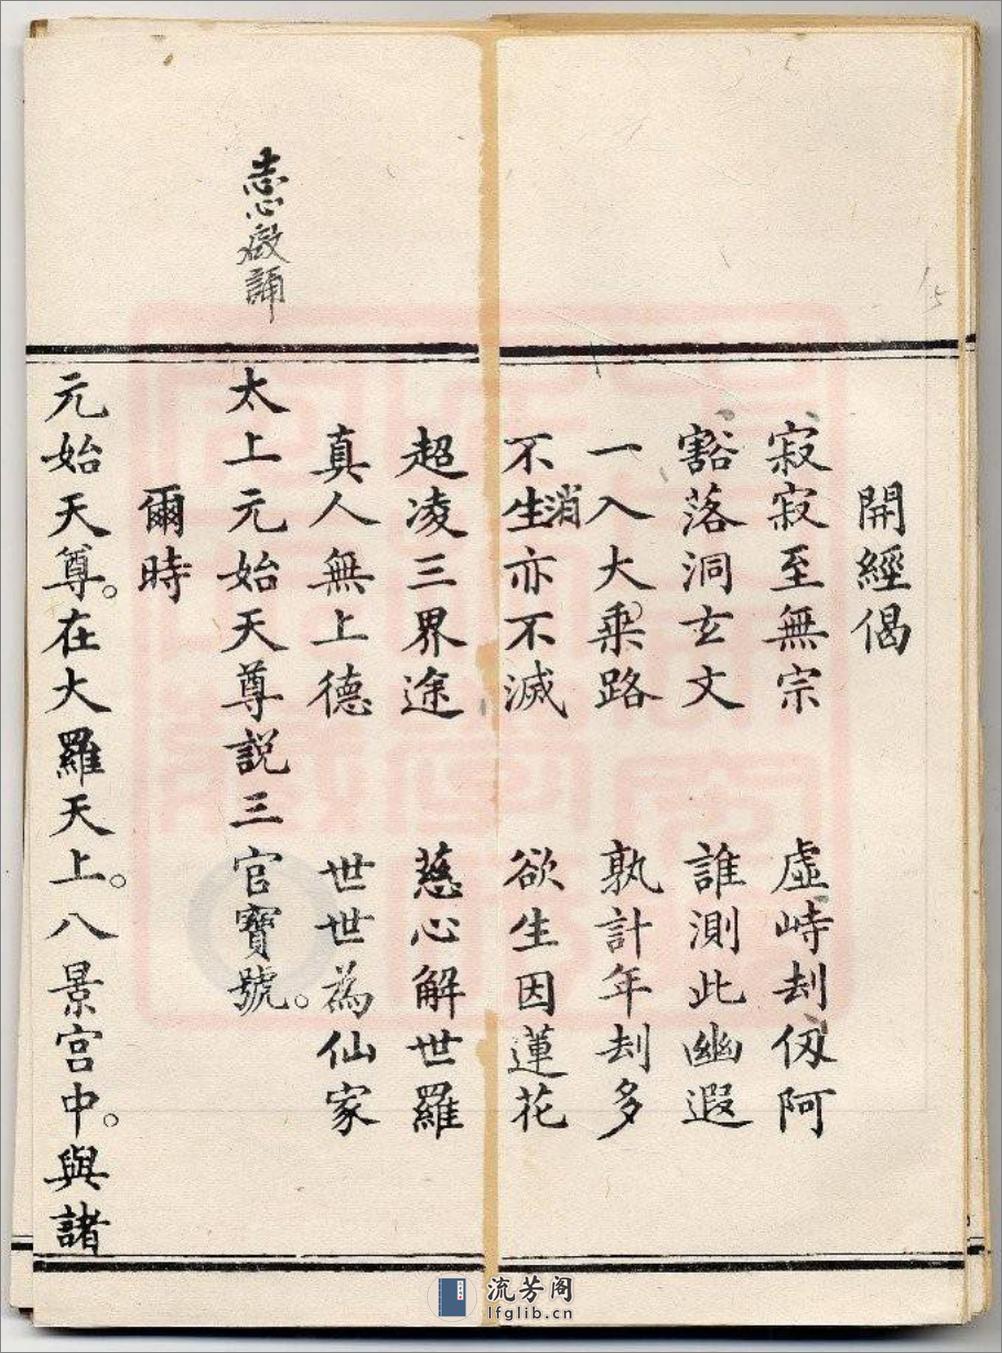 開經偈
寂寂至無宗 虛峙刦仭阿
豁落洞玄文 誰測此幽遐
一入大乘路 孰計年刦多
不生亦不滅 欲生因蓮花
消
超凌三界途 慈心解世羅
真人無上德 世世為仙家
太上元始天尊説三官寶號。
志心啟誦
爾時
元始天尊。在大羅天上。八景宫中。與諸
流芳阁
lfglib.cn